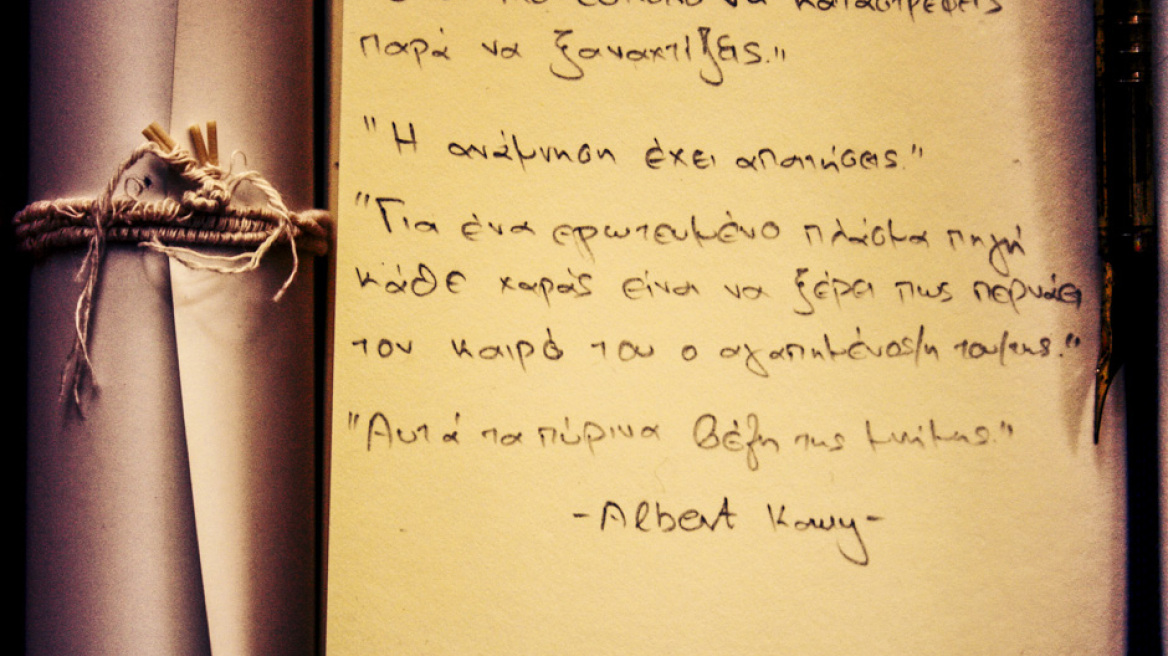 πιο εύκολο να καταστρέφεις
παρά να ξαναχτίζεις."
"Η ανάμνηση έχει απαιτήσεις."
"Για ένα ερωτευμένο πλάσμα πηγή
κάθε χαράς είναι να ξέρει πως περνάει
τον καιρό του ο αγαπημένος/η του/της."
"Αυτά τα πύρινα βέλη της μνήμης."
-Albert Kamy-